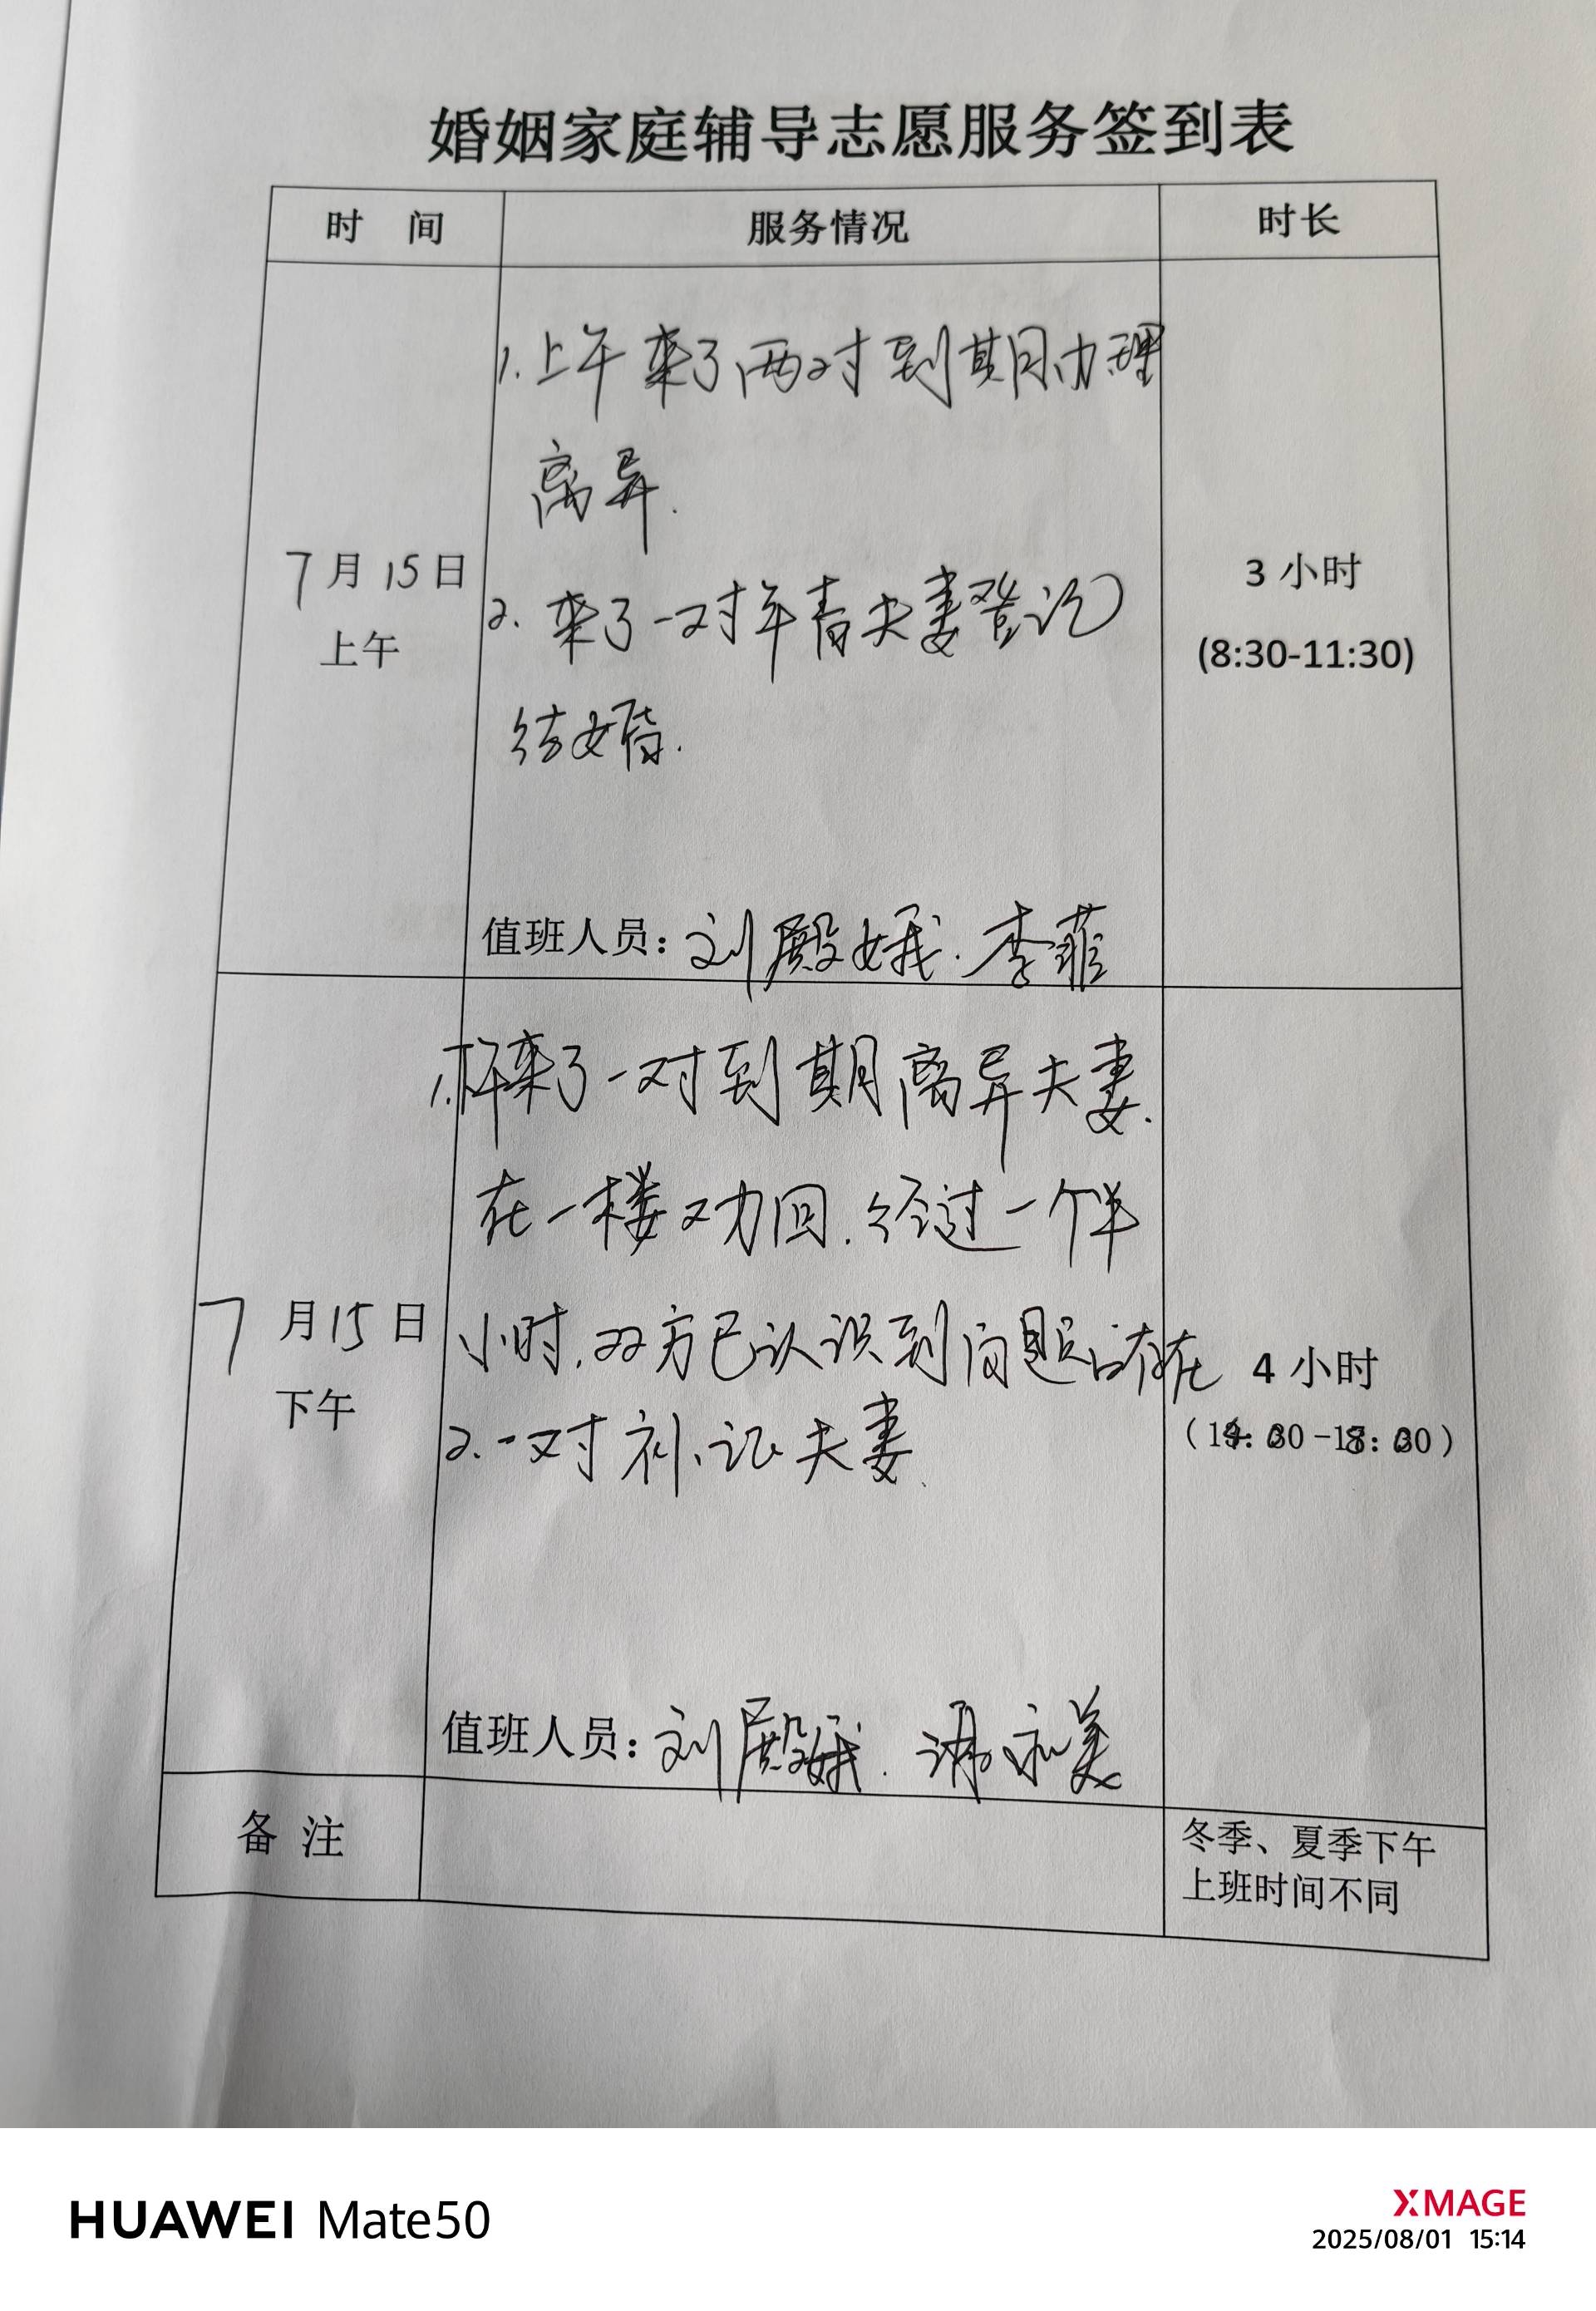 婚姻家庭辅导志愿服务签到表
时 间 服务情况 时长
1.上午来了两对到期办理
离异.
7月15日
上午
2.来了一对年青夫妻登记
结婚.
3小时
(8:30-11:30)
值班人员：刘殿娥.李菲
1.下午来了一对到期离异夫妻.
在一楼劝回.经过一个半
小时.双方已认识到问题的存在
2.一对补证夫妻.
7月15日
下午
4小时
值班人员：刘殿娥.
备 注
冬季、夏季下午
上班时间不同
HUAWEI Mate50
XMAGE
2025/08/01 15:14